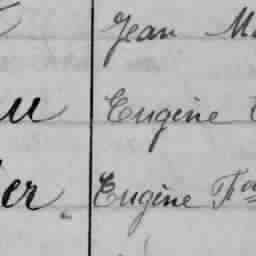 Jean M
u Eugène
er Eugène Fra